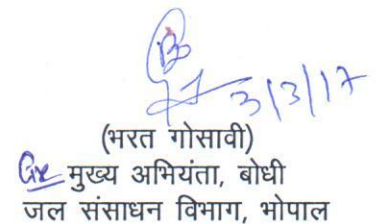 3/3/17
(भरत गोसावी)
मुख्य अभियंता, बोधी
जल संसाधन विभाग, भोपाल